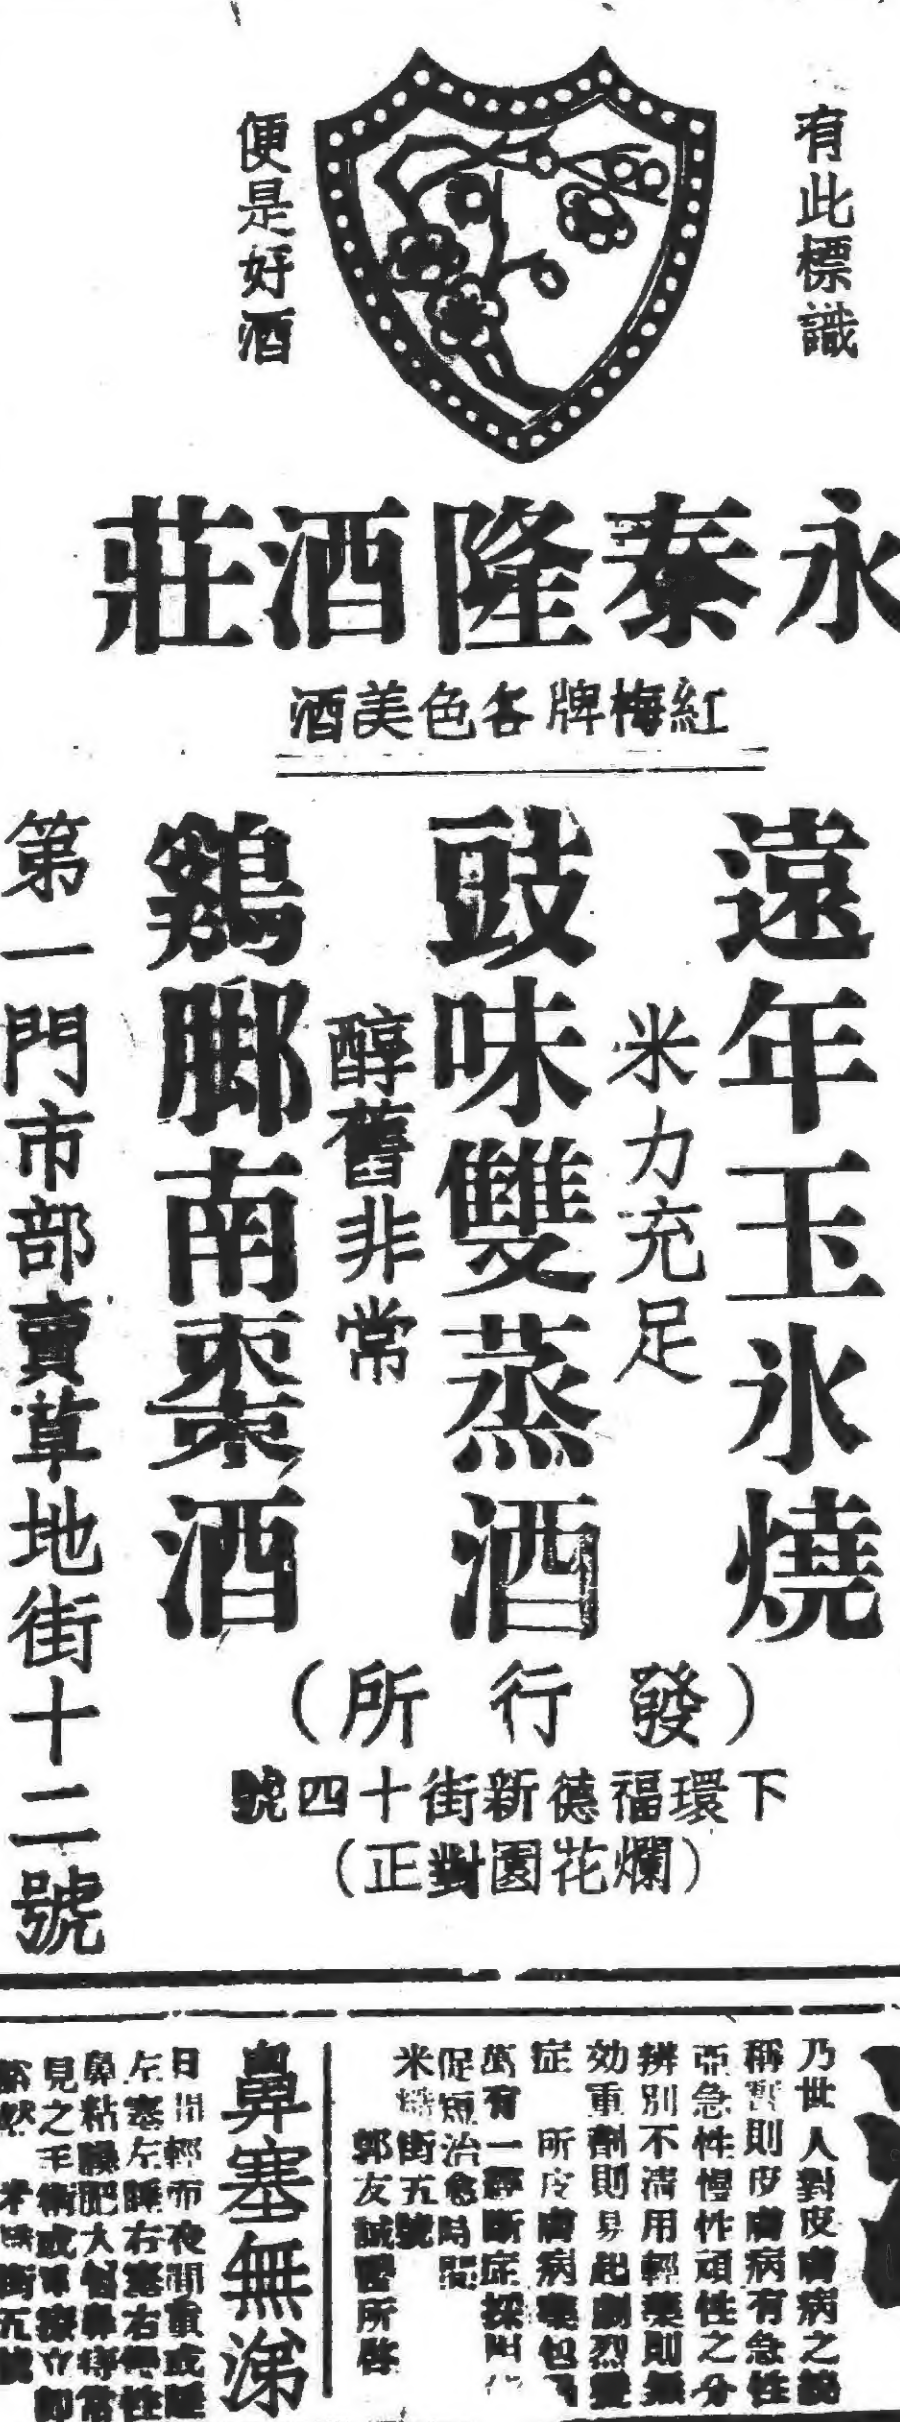 有此標識
便是好酒
永泰隆酒莊
紅梅牌各色美酒
遠年玉氷燒
米力充足
豉味雙蒸酒
醇舊非常
鷄脚南棗酒
第一門市部賣草地街十二號
(發行所)
下環福德新街十四號
(爛花園對正)
乃世人對皮膚病之說
稱暫則皮膚病有急性
亞急性慢性頑性之分
辨別不清用輕藥則無
効重劑則易起劇烈變
症 所皮膚病藥包
萬有一經斷症採用
促短治愈時間
米糙街五號
郭友誠醫所啓
鼻塞無涕
日間輕而夜間重或睡
左塞左睡右塞右
鼻粘膜肥大
見之手術或
米糙街五號